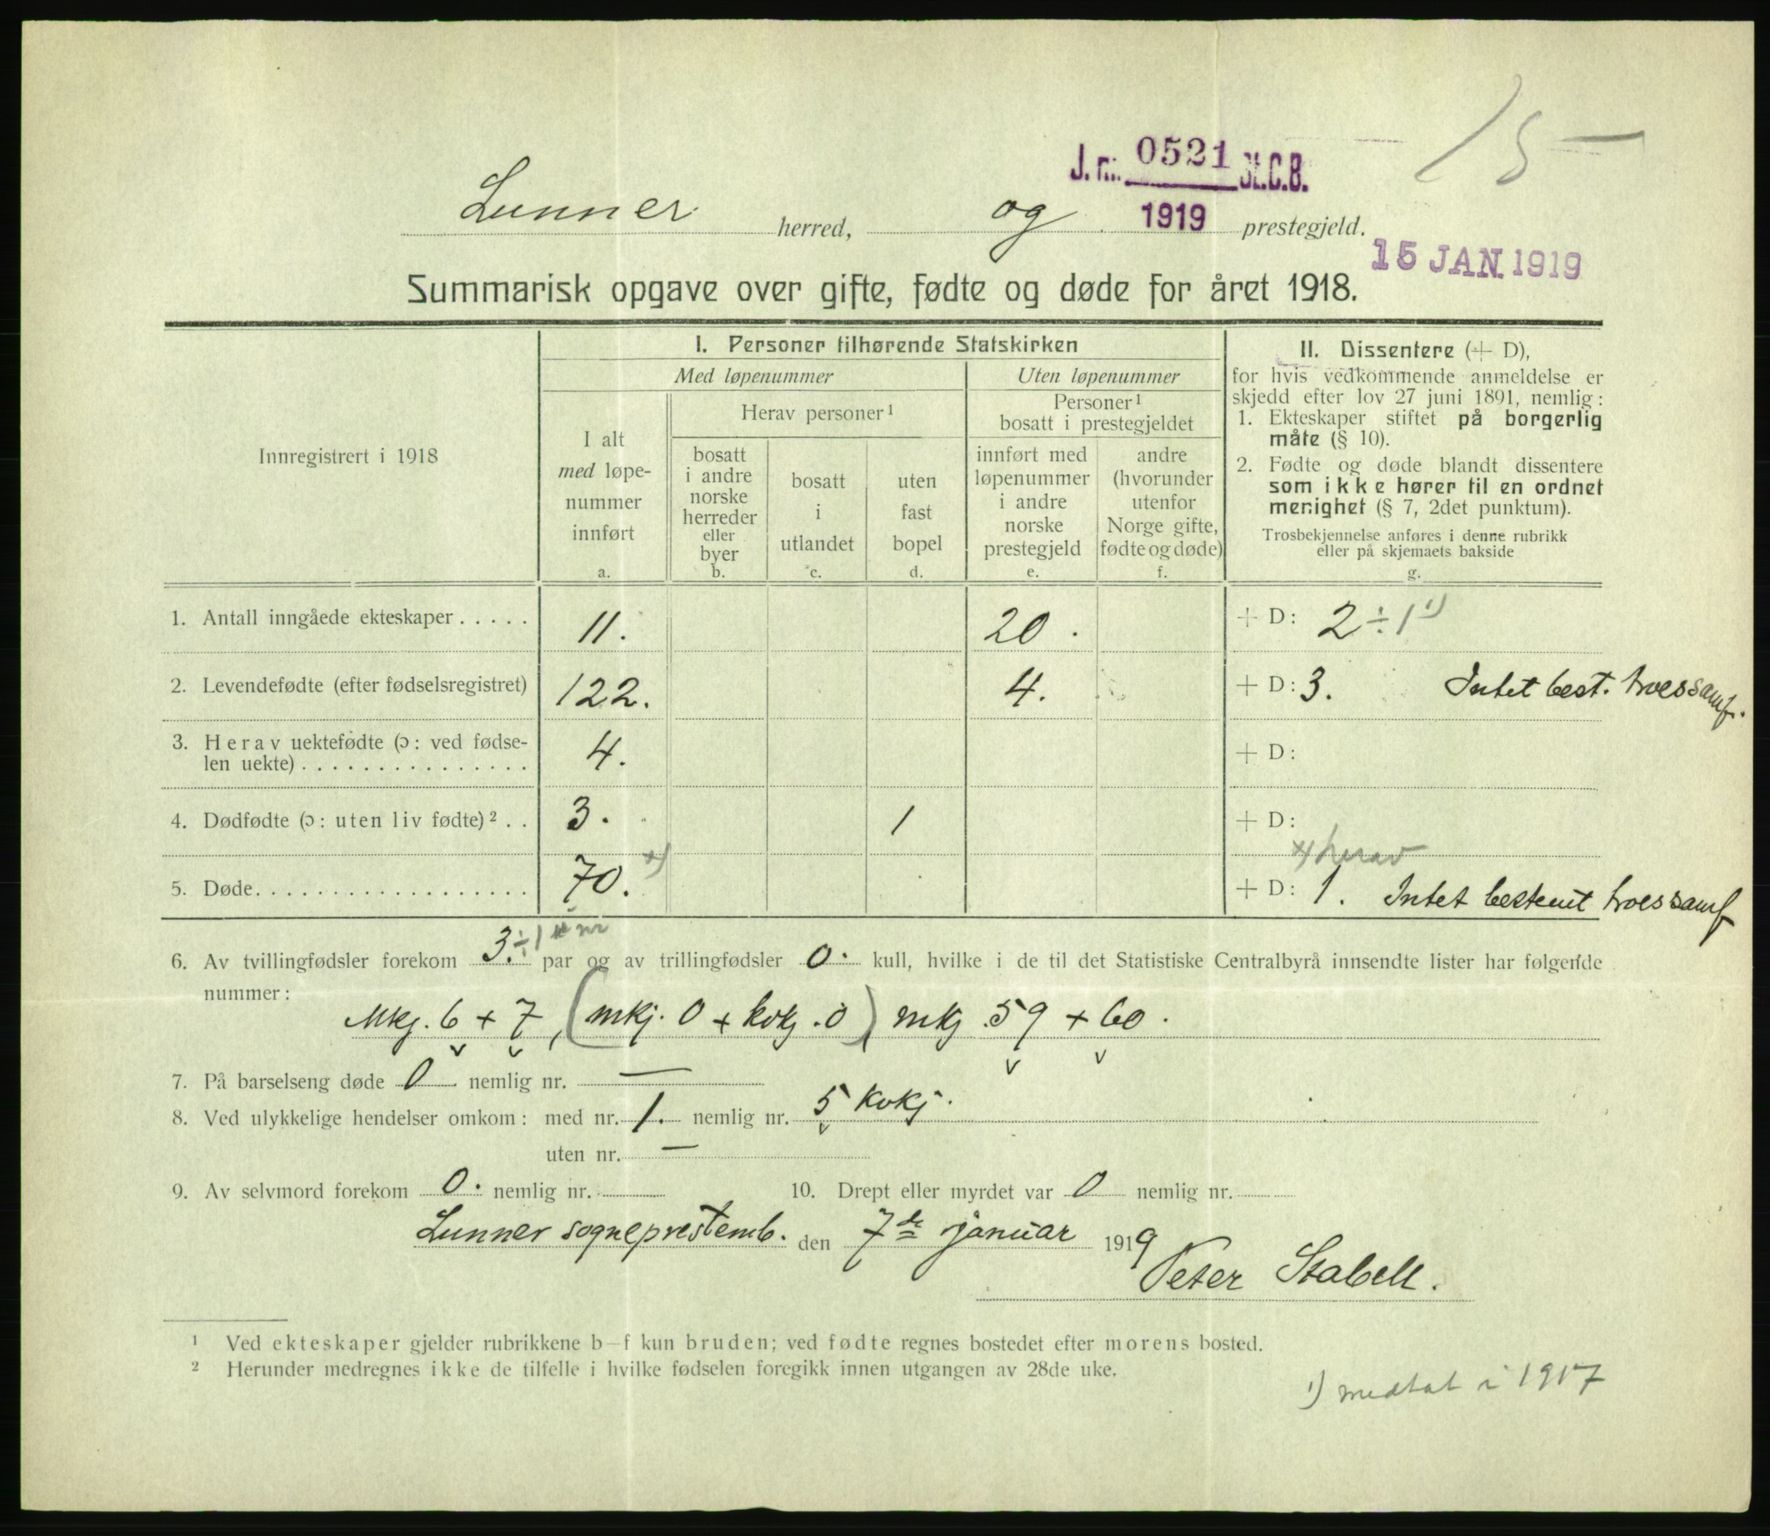 15 —
J. nr. 0521 St.C.B.
1919
Lunner herred, og prestegjeld.
15 JAN. 1919
Summarisk opgave over gifte, fødte og døde for året 1918.
Innregistrert i 1918
I. Personer tilhørende Statskirken
Med løpenummer
Uten løpenummer
I alt
med løpe-
nummer
innført
a.
Herav personer ¹
bosatt
i andre
norske
herreder
eller
byer
b.
bosatt
i
utlandet
c.
uten
fast
bopel
d.
Personer ¹
bosatt i prestegjeldet
innført med
løpenummer
i andre
norske
prestegjeld
e.
andre
(hvorunder
utenfor
Norge gifte,
fødte og døde)
f.
II. Dissentere (+ D),
for hvis vedkommende anmeldelse er
skjedd efter lov 27 juni 1891, nemlig:
1. Ekteskaper stiftet på borgerlig
måte (§ 10).
2. Fødte og døde blandt dissentere
som ikke hører til en ordnet
menighet (§ 7, 2det punktum).
Trosbekjennelse anføres i denne rubrikk
eller på skjemaets bakside
g.
1. Antall inngåede ekteskaper . . . . . 11. 20. + D: 2 ÷ 1 ¹)
2. Levendefødte (efter fødselsregistret) 122. 4. + D: 3. Intet best. troessamf.
3. Herav uektefødte (ɔ: ved fødse-
len uekte) . . . . . . . . . . . . . . . 4. + D:
4. Dødfødte (ɔ: uten liv fødte) ² . . 3. 1 + D:
x) herav
5. Døde. . . . . . . . . . . . . . . . . . 70. x) + D: 1. Intet bestemt troessamf
6. Av tvillingfødsler forekom 3. ÷ 1 nr par og av trillingfødsler 0. kull, hvilke i de til det Statistiske Centralbyrå innsendte lister har følgende
nummer:
Mkj. 6 + 7, (mkj. 0 + kvkj. 0) mkj. 59 + 60.
7. På barselseng døde 0 nemlig nr. —
8. Ved ulykkelige hendelser omkom: med nr. 1. nemlig nr. 5 kvkj.
uten nr. —
9. Av selvmord forekom 0. nemlig nr. 10. Drept eller myrdet var 0 nemlig nr.
Lunner sogneprestemb. den 7de januar 1919
Peter Stabell.
¹ Ved ekteskaper gjelder rubrikkene b–f kun bruden; ved fødte regnes bostedet efter morens bosted.
² Herunder medregnes ikke de tilfelle i hvilke fødselen foregikk innen utgangen av 28de uke.
¹) medtat i 1917